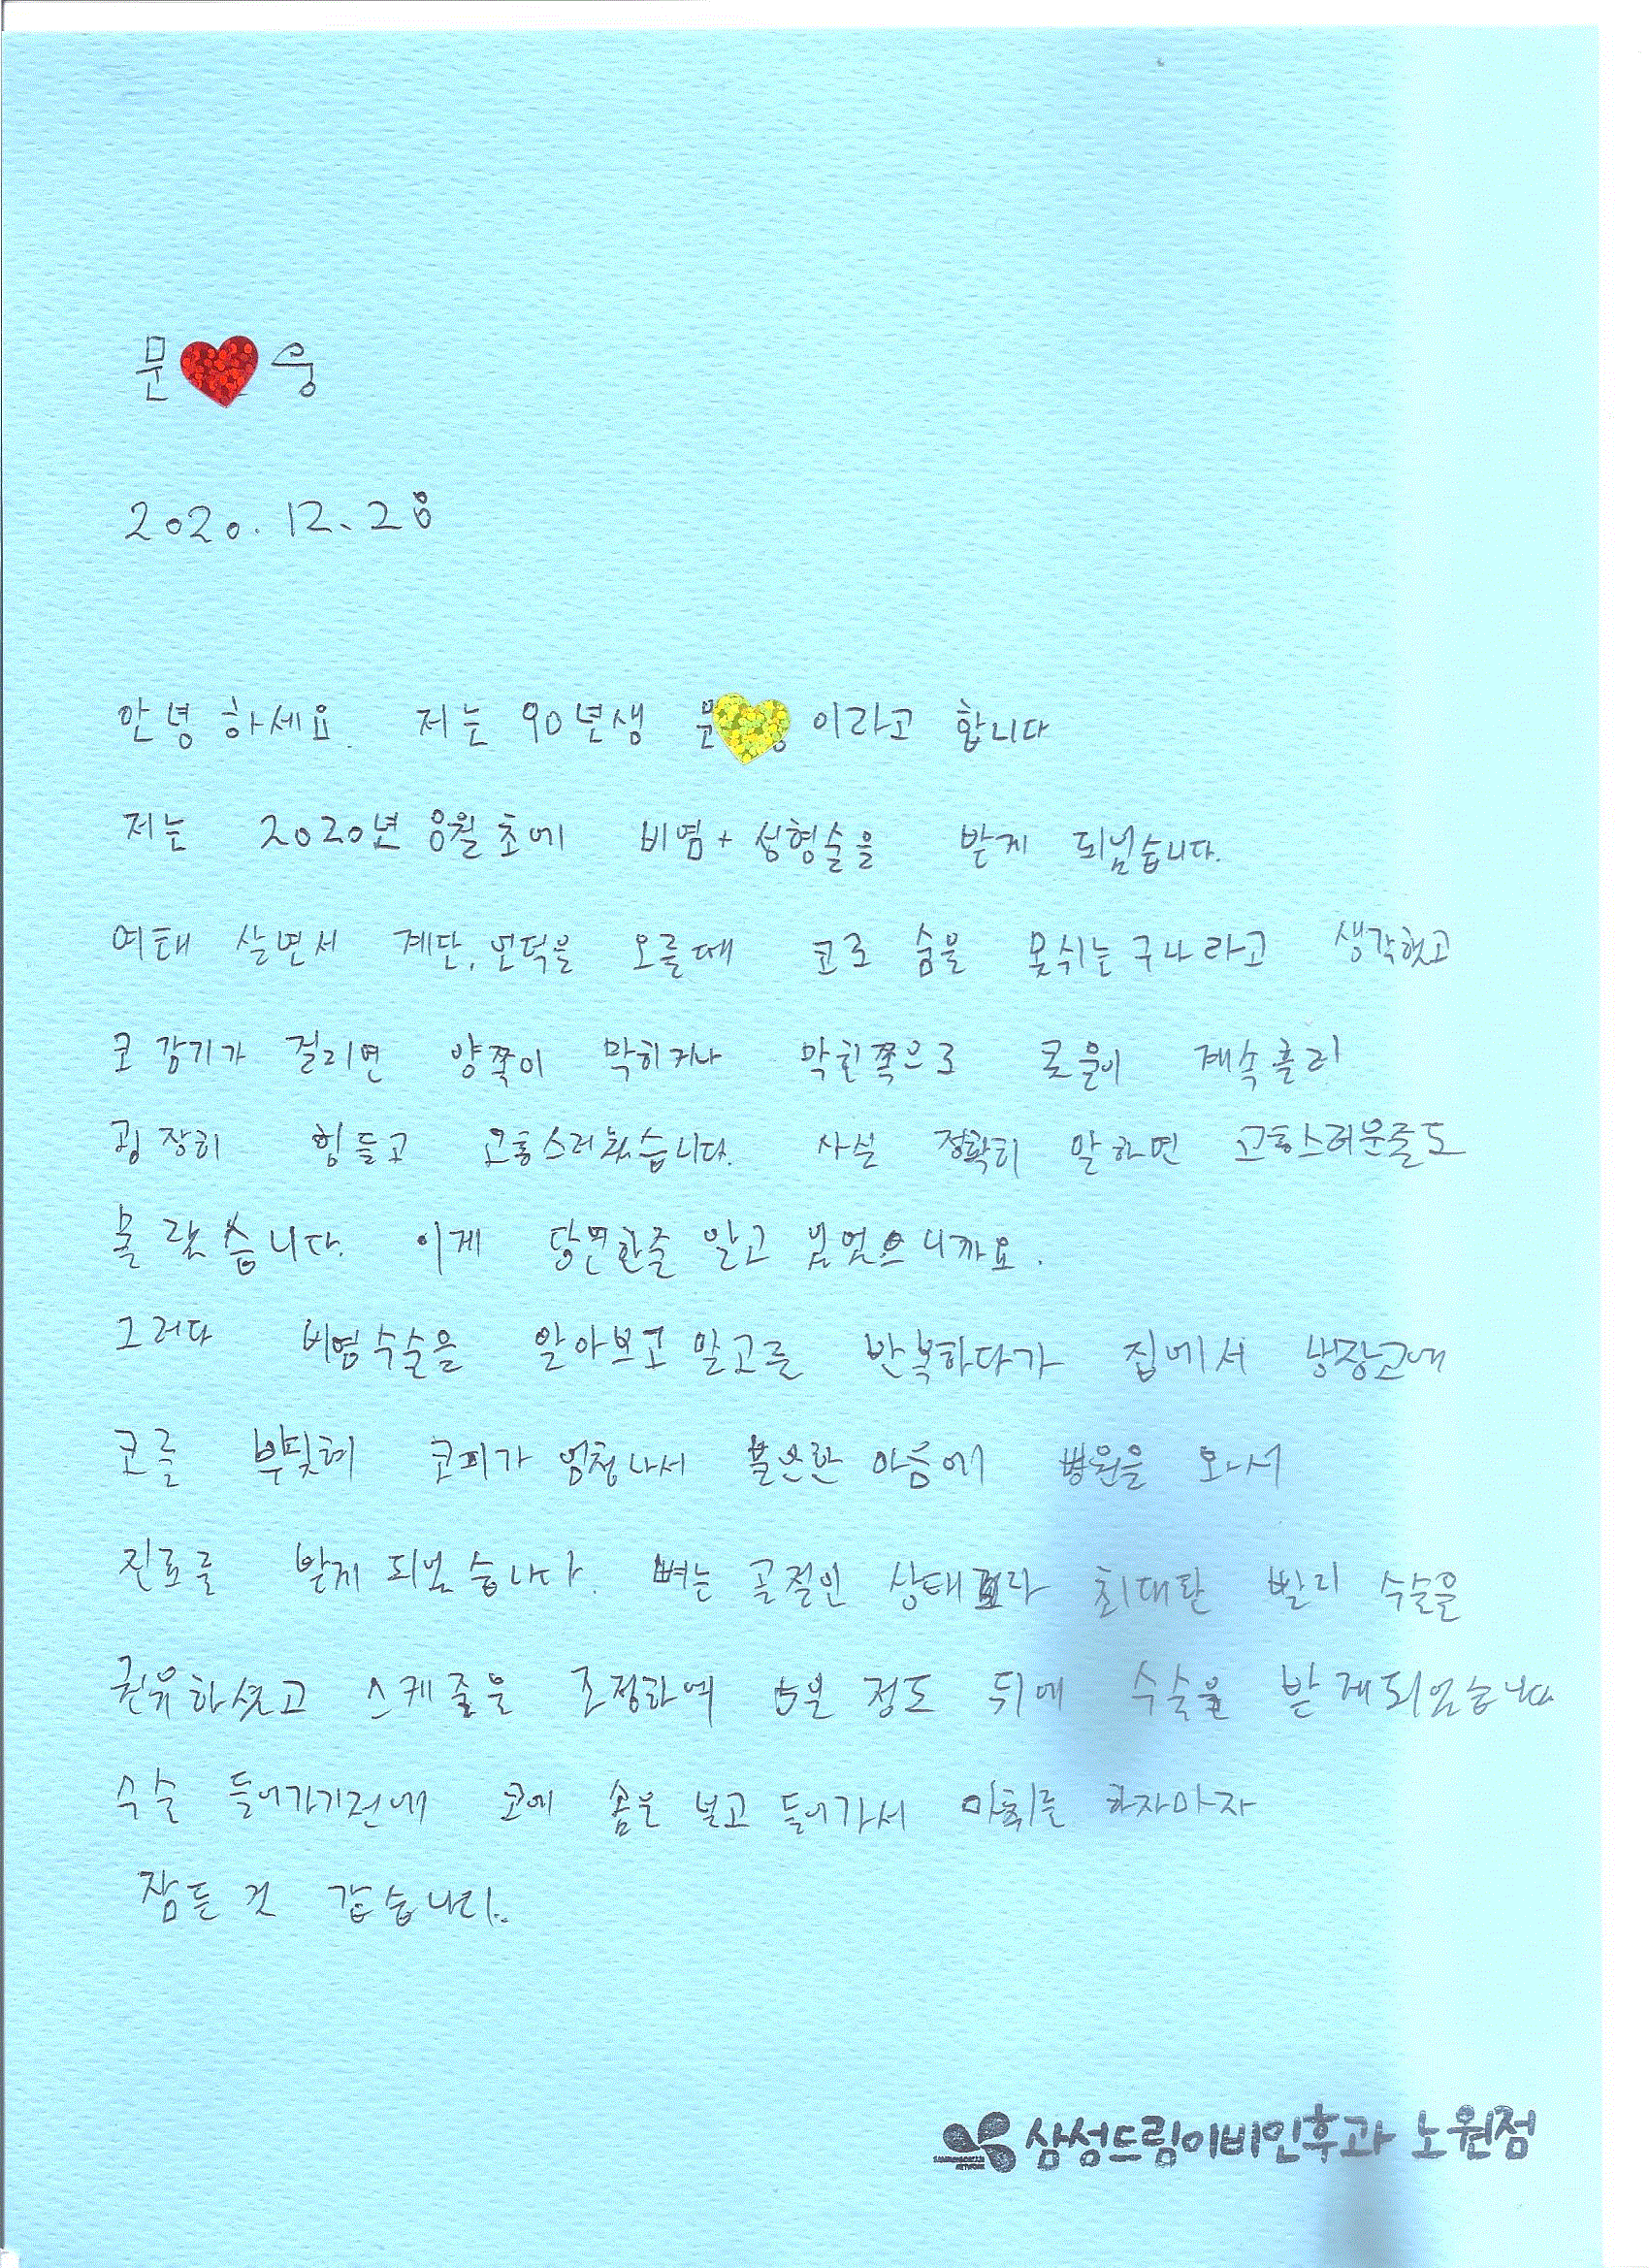 문 웅
2020. 12. 28
안녕하세요. 저는 90년생 문 이라고 합니다
저는 2020년 8월초에 비염+성형술을 받게 되었습니다.
여태 살면서 계단, 언덕을 오를때 코로 숨을 못쉬는구나라고 생각했고
코감기가 걸리면 양쪽이 막히거나 막힌쪽으로 콧물이 계속 흘러
굉장히 힘들고 고통스러웠습니다. 사실 정확히 말하면 고통스러운줄도
몰랐습니다. 이게 당연한줄 알고 있었으니까요.
그러다 비염수술을 알아보고 말고를 반복하다가 집에서 냉장고에
코를 부딪혀 코피가 엄청나서 불안한 마음에 병원을 와서
진료를 받게 되었습니다. 뼈는 골절인 상태 최대한 빨리 수술을
권유하셧고 스케줄을 조정하여 5일 정도 뒤에 수술을 받게되었습니다
수술 들어가기전에 코에 솜을 넣고 들어가서 마취를 하자마자
잠든것 같습니다.
삼성드림이비인후과 노원점